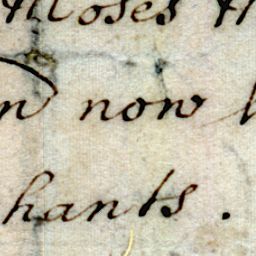 Moses
now
hants.